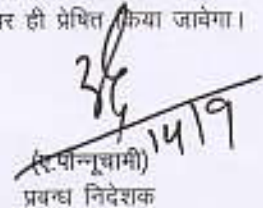 र ही प्रेषित किया जावेगा।
14/9
(ए.पोन्नूचामी)
प्रबन्ध निदेशक